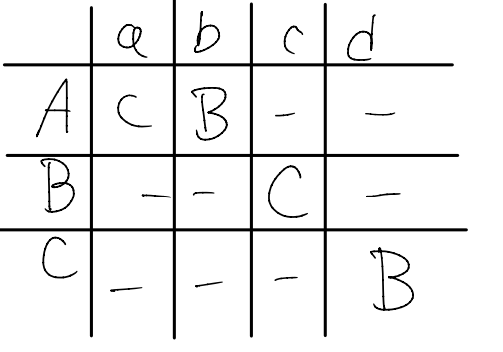 a b c d
A C B - -
B - - C -
C - - - B